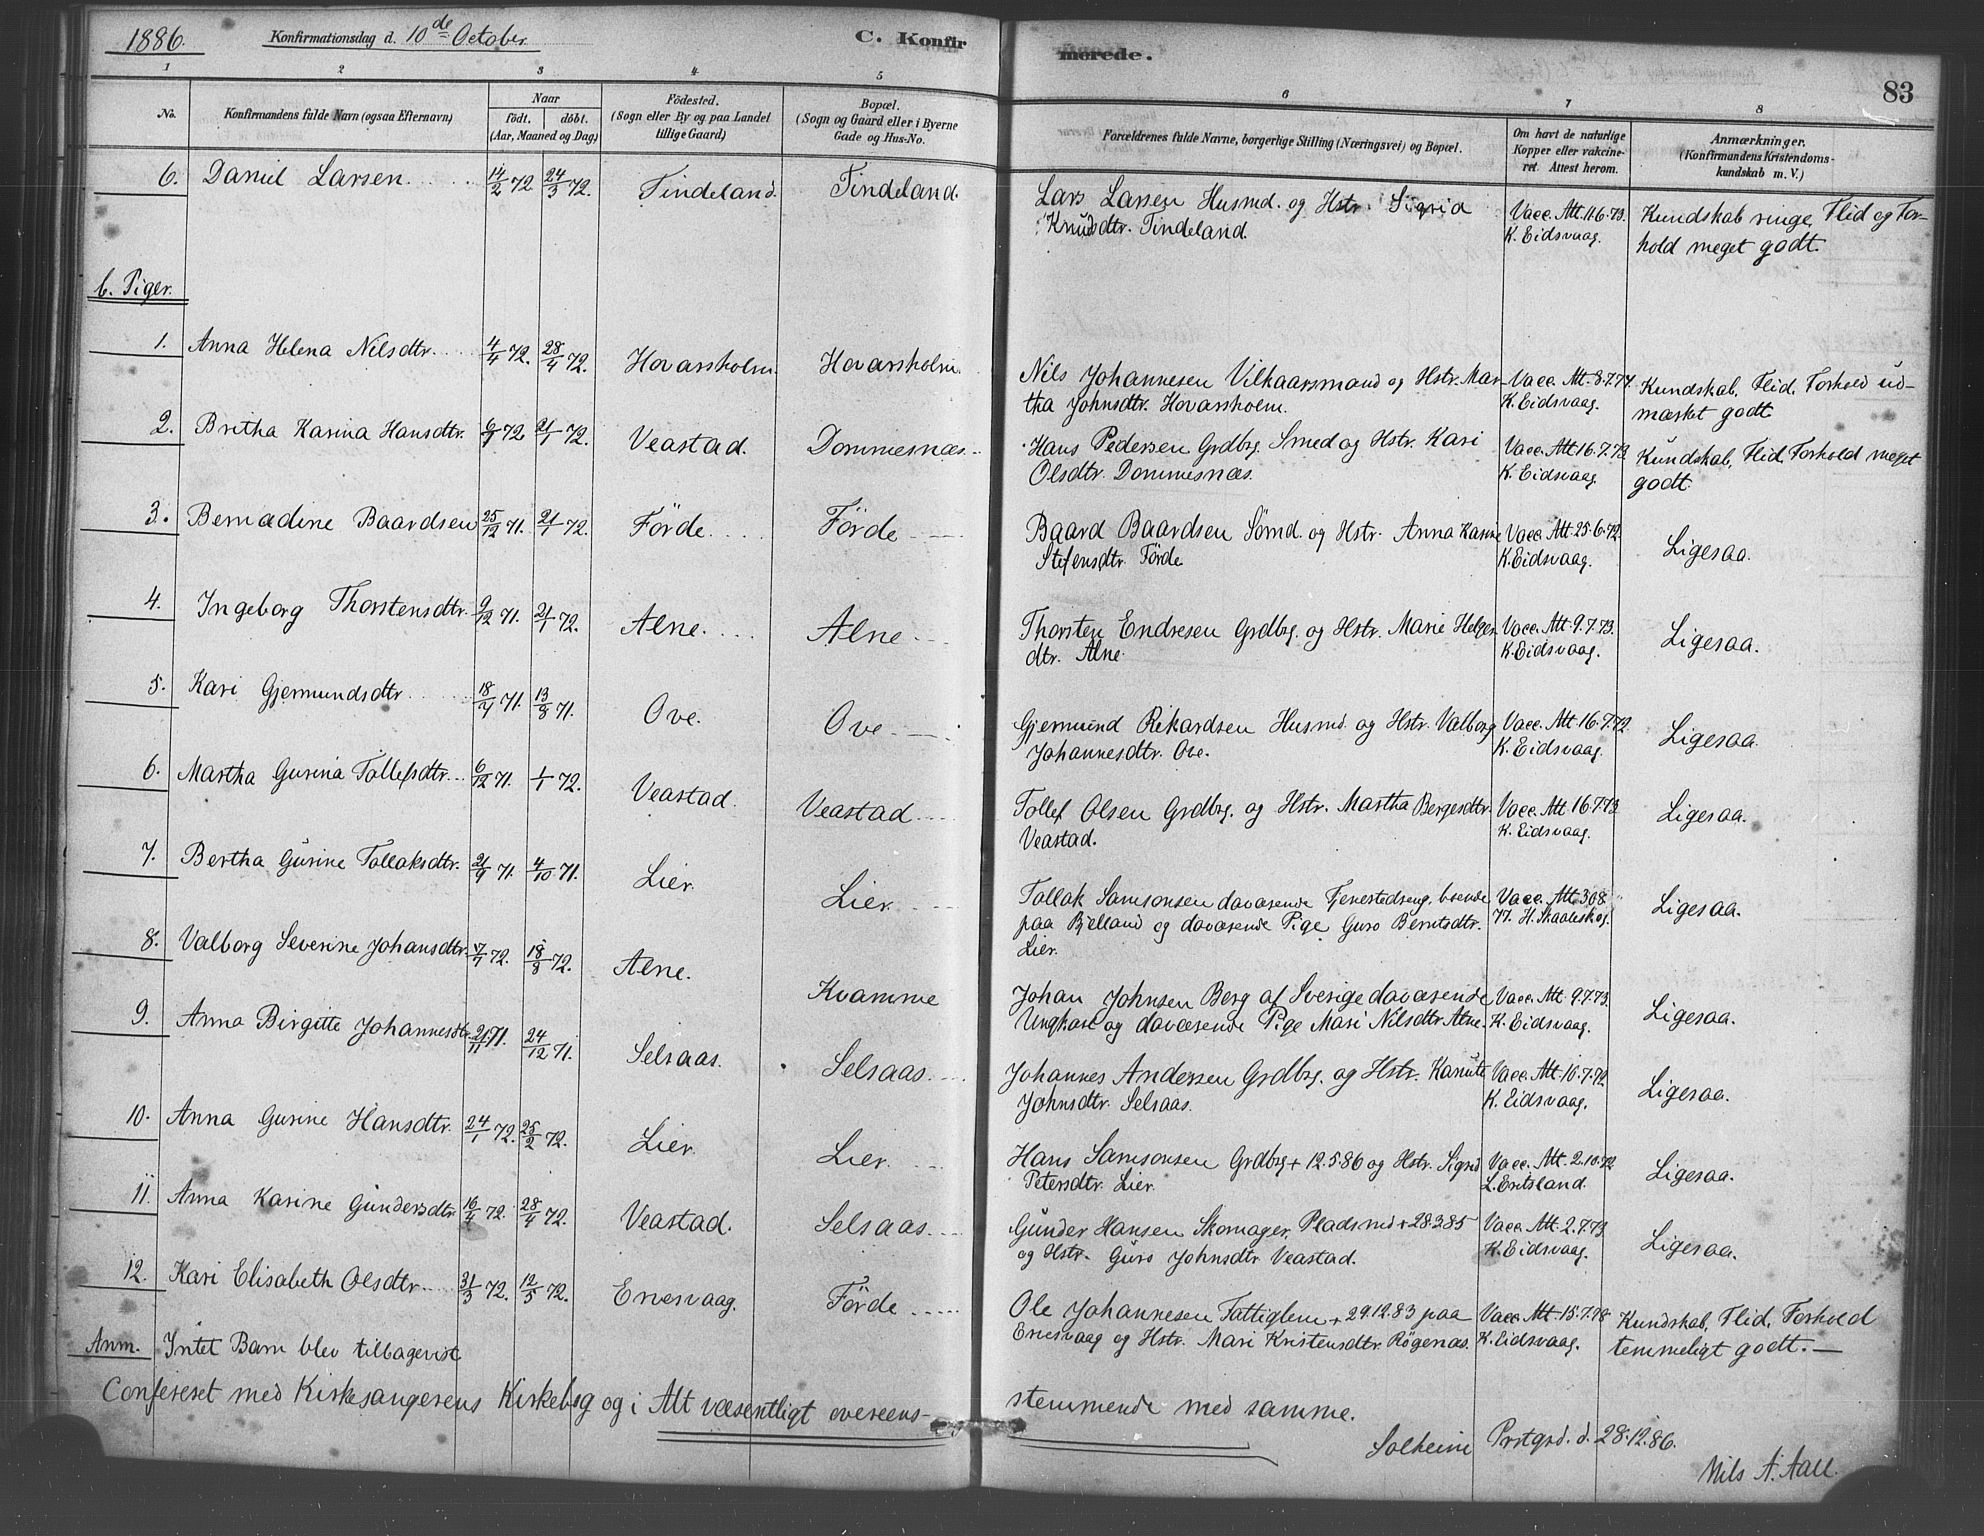 1886. Konfirmationsdag d. 10de October C. Konfirmerede.
83
1 2 3 4 5 6 7 8
No. Konfirmandens fulde Navn (ogsaa Efternavn) Naar födt. döbt. (Aar, Maaned og Dag) Födested. (Sogn eller By og paa Landet tillige Gaard) Bopæl. (Sogn og Gaard eller i Byerne Gade og Hus-No. Forældrenes fulde Navne, borgerlige Stilling (Næringsvei) og Bopæl. Om havt de naturlige Kopper eller vakcineret Attest herom. Anmærkninger. (Konfirmandens Kristendomskundskab m. V.)
6. Daniel Larsen 14/2 72 24/3 72. Tindeland. Tindeland. Lars Larsen Husmd. og Hstr. Sigrid Vacc. Att. 11.6.73. Kundskab ringe, Flid og For-
Knudsdtr. Tindeland. K. Eidsvaag. hold meget godt.
b. Piger.
1. Anna Helena Nilsdtr. 4/4 72. 28/4 72. Hovarsholm. Hovarsholm. Nils Johannesen Vilkaarsmand og Hstr. Mar- Vacc. Att. 8.7.74. Kundskab, Flid, Forhold ud-
tha Johnsdtr. Hovarsholm. K. Eidsvaag. mærket godt
2. Britha Karina Hansdtr. 6/1 72 21/1 72. Veastad. Dommesnæs. Hans Pedersen Grdbrg. Smed og Hstr. Kari Vacc. Att. 16.7.73. Kundskab, Flid, Forhold meget
Olsdtr. Dommesnæs. K. Eidsvaag. godt.
3. Bernadine Baardsen 25/12 71. 21/1 72. Förde. Förde Baard Baardsen Sömd. og Hstr. Anna Karine Vacc. Att. 25.6.72. Ligesaa.
Stefensdtr. Förde. K. Eidsvaag.
4. Ingeborg Thorstensdtr. 9/12 71. 21/1 72. Alne. Alne Thorsten Endresen Grdbrg. og Hstr. Marie Helges Vacc. Att. 9.7.73. Ligesaa.
dtr. Alne. K. Eidsvaag.
5. Kari Gjermundsdtr. 18/7 71. 13/8 71. Ove. Ove Gjermund Rikardsen Husmd. og Hstr. Valborg Vacc. Att. 16.7.72. Ligesaa.
Johannesdtr. Ove. K. Eidsvaag.
6. Martha Gurina Tollefsdtr. 6/12 71. 1/1 72. Veastad. Veastad Tollef Olsen Grdbrg. og Hstr. Martha Bergesdtr. Vacc. Att. 16.7.73. Ligesaa.
Veastad. K. Eidsvaag.
7. Bertha Gurine Tollaksdtr. 21/9 71. 4/10 71. Lier. Lier Tollak Samsonsen daværende Tjenestedreng, boende Vacc. Att. 30.8. Ligesaa.
paa Bjelland og daværende Pige Guro Berntsdtr. 77. H. Skaaleskog.
Lier.
8. Valborg Severine Johansdtr. 7/7 72. 18/8 72. Alne. Kvamme Johan Johnsen Berg af Sverige daværende Vacc. Att. 9.7.73. Ligesaa.
Ungkarl og daværende Pige Mari Nilsdtr. Alne. K. Eidsvaag.
9. Anna Birgitte Johannesdtr. 21/11 71. 24/12 71. Selsaas. Selsaas. Johannes Andersen Grdbrg. og Hstr. Kanute Vacc. Att. 16.7.72. Ligesaa.
Johnsdtr. Selsaas. K. Eidsvaag.
10. Anna Gurine Hansdtr. 24/1 72. 25/2 72. Lier. Lier. Hans Samsonsen Grdbrg + 12.5.86 og Hstr. Sigrid Vacc. Att. 2.10.72 Ligesaa.
Petersdtr. Lier. L. Eritsland.
11. Anna Karine Gundersdtr. 16/4 72. 28/4 72. Veastad. Selsaas. Gunder Hansen Skomager, Pladsmd + 28.3.85 Vacc. Att. 2.7.73. Ligesaa.
og Hstr. Guro Johnsdtr. Veastad. K. Eidsvaag.
12. Kari Elisabeth Olsdtr. 31/3 72. 12/5 72. Enesvaag. Förde Ole Johannesen Fattiglem + 29.12.83 paa Vacc. Att. 15.7.78 Kundskab, Flid, Forhold
Enesvaag og Hstr. Mari Kristensdtr. Rögenæs. K. Eidsvaag. temmeligt godt. —
Anm. Intet Barn blev tilbagevist
Confereret med Kirkesangerens Kirkebog og i Alt væsentligt overeens-
stemmende med samme.
Solheim Prstgrd. d. 28.12.86.
Nils A. Aall.